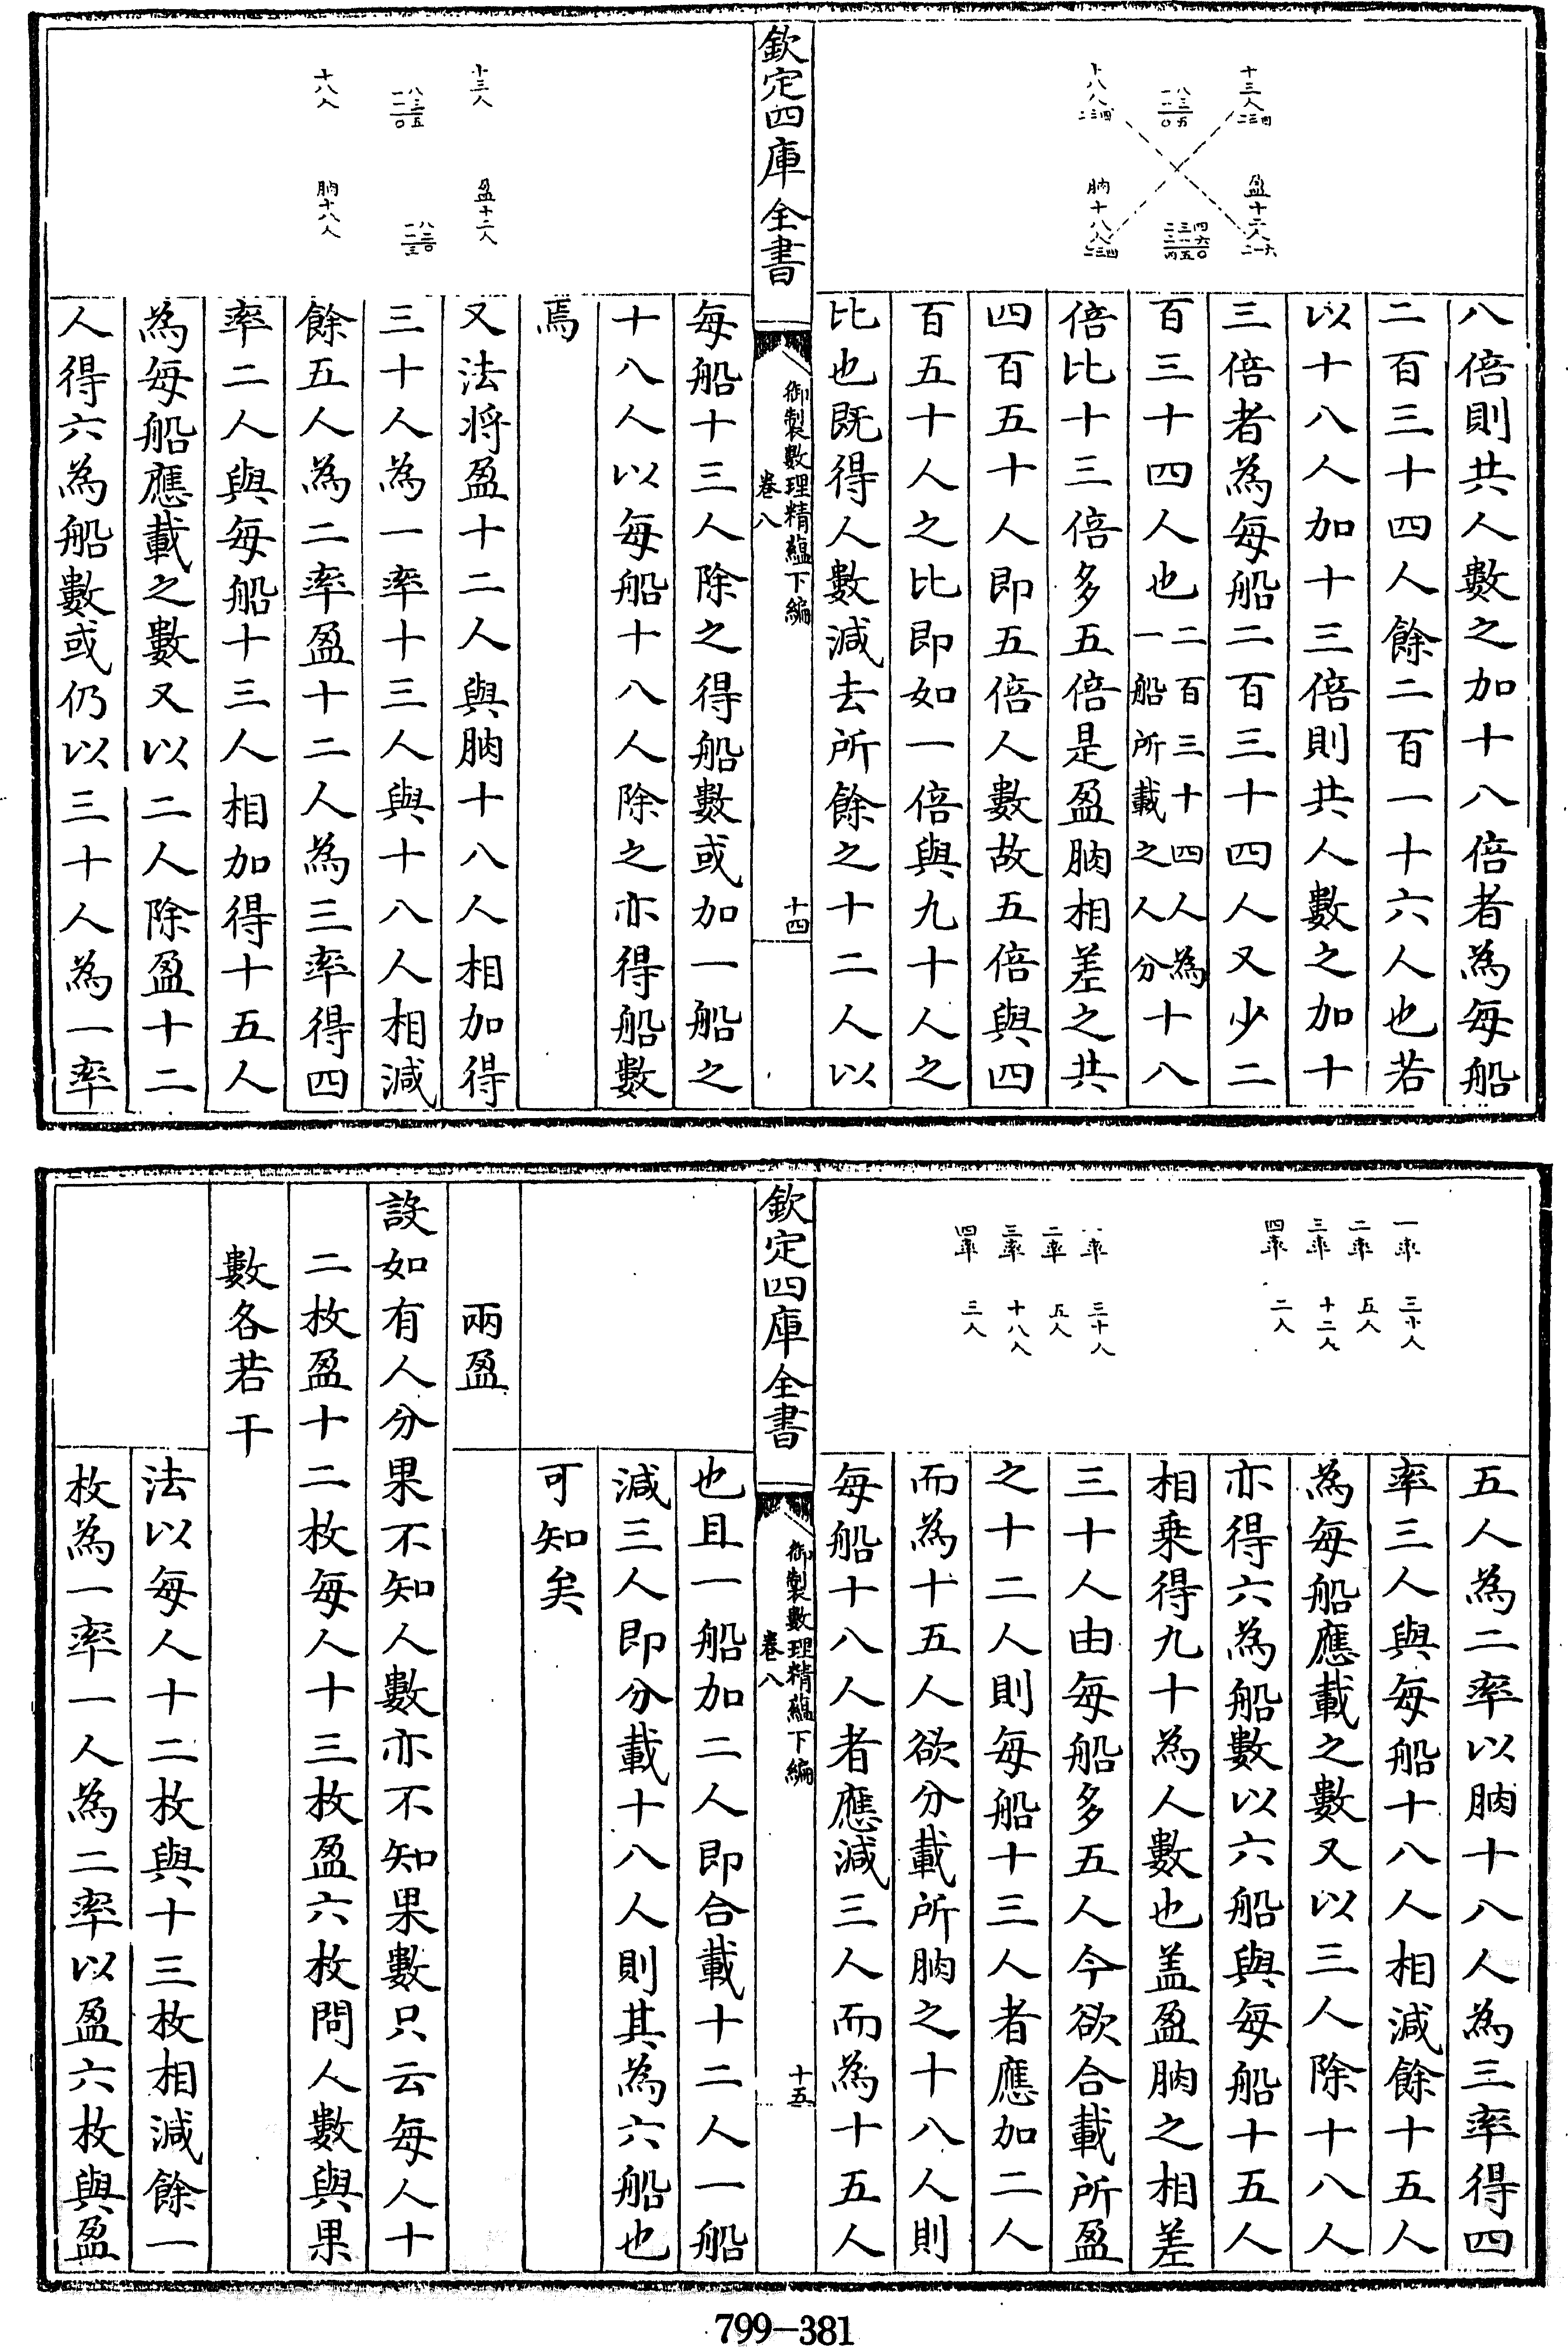 十三人
二三四
八三五
一一〇
十八人
二三四
盈十二人
二一六
四六〇
二三一五〇
朒十八人
二三四
八倍則共人數之加十八倍者為每船
二百三十四人餘二百一十六人也若
以十八人加十三倍則共人數之加十
三倍者為每船二百三十四人又少二
百三十四人也二百三十四人為一船所載之人分十八
倍比十三倍多五倍是盈朒相差之共
四百五十人即五倍人數故五倍與四
百五十人之比即如一倍與九十人之
比也既得人數減去所餘之十二人以
欽定四庫全書
御製數理精蘊下編
卷八
十四
十三人
八三五
一一〇
十八人
盈十二人
八三〇
一一三
朒十八人
每船十三人除之得船數或加一船之
十八人以每船十八人除之亦得船數
焉
又法將盈十二人與朒十八人相加得
三十人為一率十三人與十八人相減
餘五人為二率盈十二人為三率得四
率二人與每船十三人相加得十五人
為每船應載之數又以二人除盈十二
人得六為船數或仍以三十人為一率
一率 三十人
二率 五人
三率 十二人
四率 二人
一率 三十人
二率 五人
三率 十八人
四率 三人
五人為二率以朒十八人為三率得四
率三人與每船十八人相減餘十五人
為每船應載之數又以三人除十八人
亦得六為船數以六船與每船十五人
相乘得九十為人數也盖盈朒之相差
三十人由每船多五人今欲合載所盈
之十二人則每船十三人者應加二人
而為十五人欲分載所朒之十八人則
每船十八人者應減三人而為十五人
欽定四庫全書
御製數理精蘊下編
卷八
十五
也且一船加二人即合載十二人一船
減三人即分載十八人則其為六船也
可知矣
兩盈
設如有人分果不知人數亦不知果數只云每人十
二枚盈十二枚每人十三枚盈六枚問人數與果
數各若干
法以每人十二枚與十三枚相減餘一
枚為一率一人為二率以盈六枚與盈
799-381